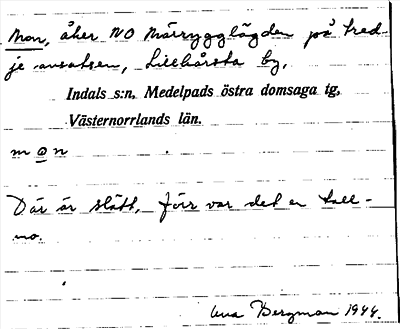 Mon, åker NO Märrygglägden på tred-
je ansatsen, Lillhårsta by,
Indals s:n, Medelpads östra domsaga tg,
Västernorrlands län.
mon
Där är slått, förr var det en tall-
mo.
Bergman 1944.